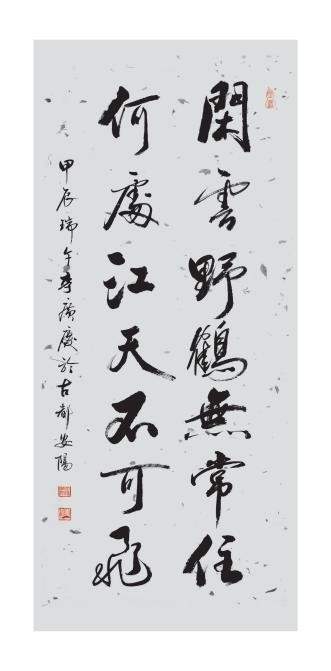 閑雲野鶴無常住
何處江天不可飛
甲辰瑞午李廣慶於古都安陽